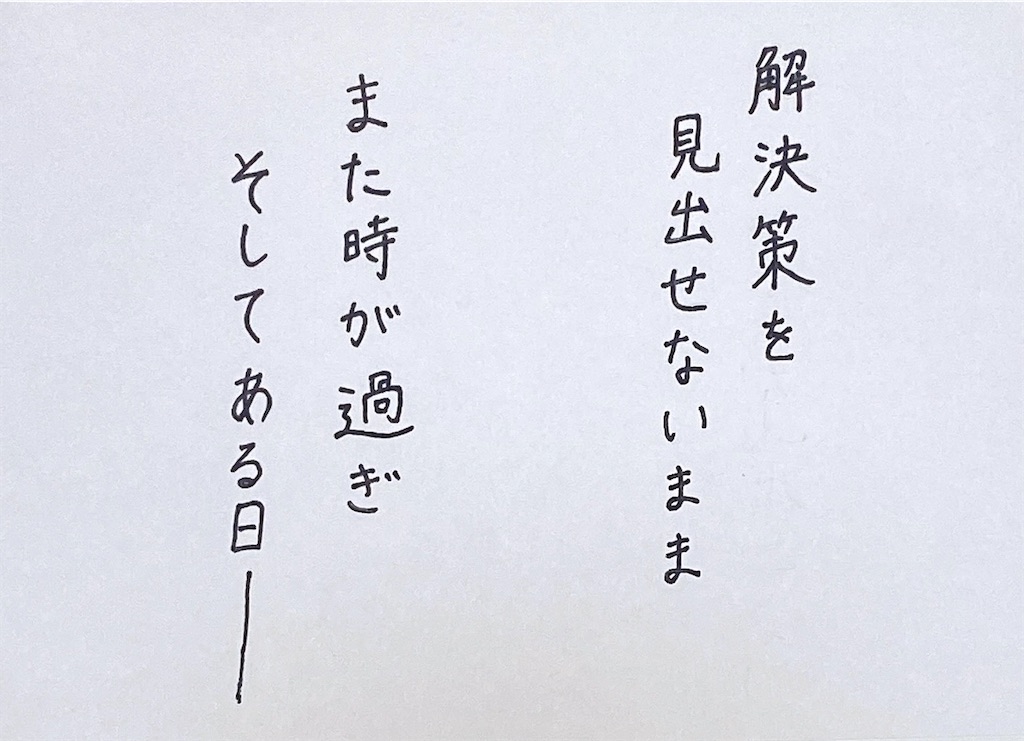 解決策を
見出せないまま
また時が過ぎ
そしてある日――